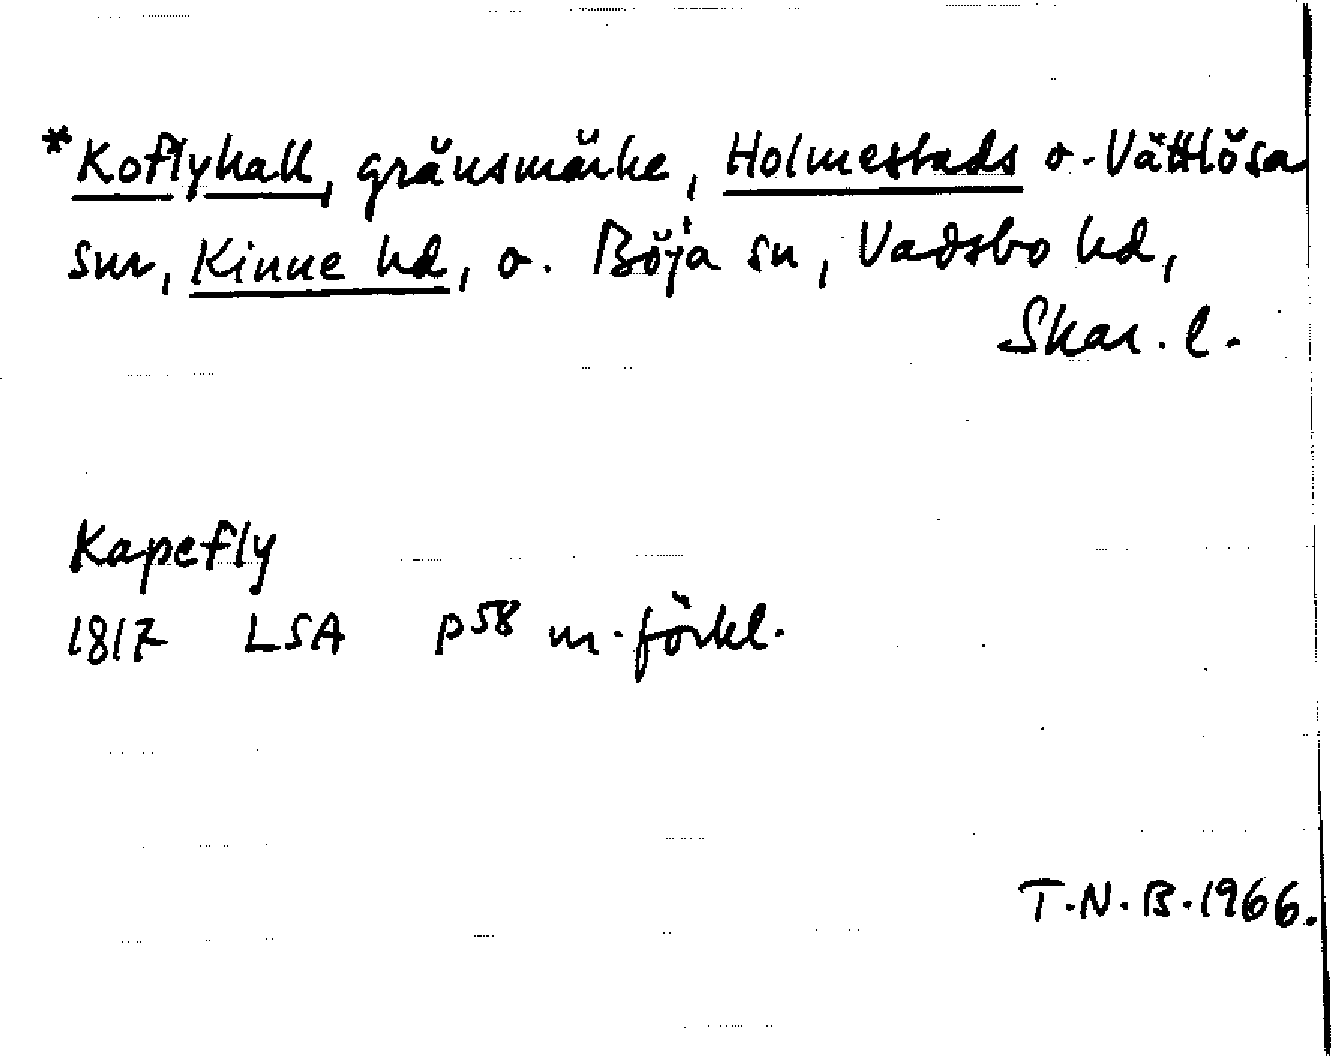 *Koflyhall, gränsmärke, Holmestads o. Vättlösa
snr, Kinne hd, o. Böja sn, Vadsbo hd,
Skar. l.
Kapefly
1817 LSA p58 m. förkl.
T.N.B. 1966.